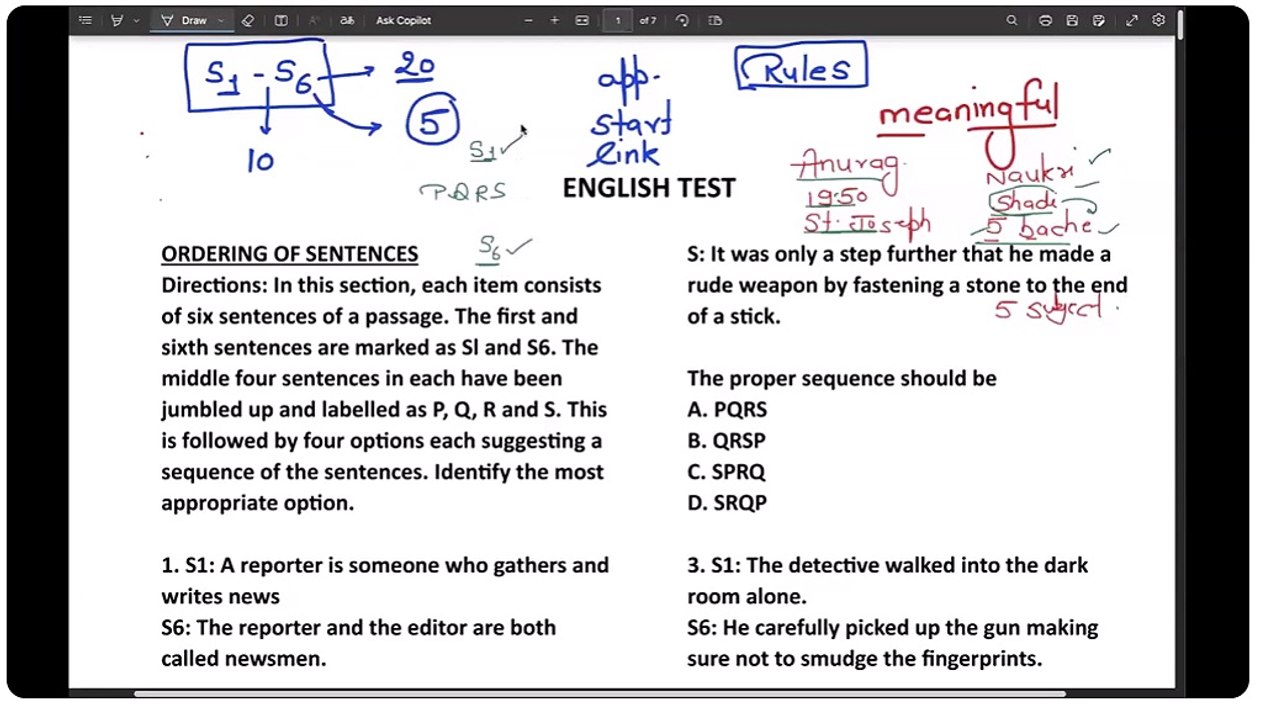 Draw
Ask Copilot
1 of 7
S1 - S6 → 20
5
10
app.
start
link
Rules
meaningful
S1
PQRS
S6
Anurag
1950
St. Joseph
Naukri
Shadi
5 bache
5 subject.
ENGLISH TEST
ORDERING OF SENTENCES
Directions: In this section, each item consists
of six sentences of a passage. The first and
sixth sentences are marked as Sl and S6. The
middle four sentences in each have been
jumbled up and labelled as P, Q, R and S. This
is followed by four options each suggesting a
sequence of the sentences. Identify the most
appropriate option.
1. S1: A reporter is someone who gathers and
writes news
S6: The reporter and the editor are both
called newsmen.
S: It was only a step further that he made a
rude weapon by fastening a stone to the end
of a stick.
The proper sequence should be
A. PQRS
B. QRSP
C. SPRQ
D. SRQP
3. S1: The detective walked into the dark
room alone.
S6: He carefully picked up the gun making
sure not to smudge the fingerprints.